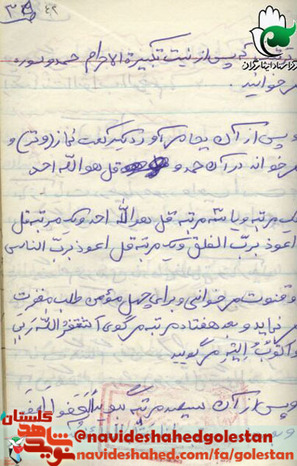 ۴۲
پس از نیت تکبیرة الاحرام حمد و سوره
می خوانید.
و پس از آن بجا می آورد یک رکعت نماز (وتر) و
می خواند در آن حمد و قل هو الله احد
یک مرتبه و یا سه مرتبه قل هو الله احد و یک مرتبه قل
اعوذ برب الفلق و یک مرتبه قل اعوذ برب الناس
و قنوت می خوانی و برای چهل مؤمن طلب مغفرت
می نماید و بعد هفتاد مرتبه می گوی استغفر الله ربی
و اتوب الیه می گویید
و پس از آن سیصد مرتبه بگوید العفو العفو
نوید شاهد
گلستان
@navideshahedgolestan
navideshahed.com/fa/golestan